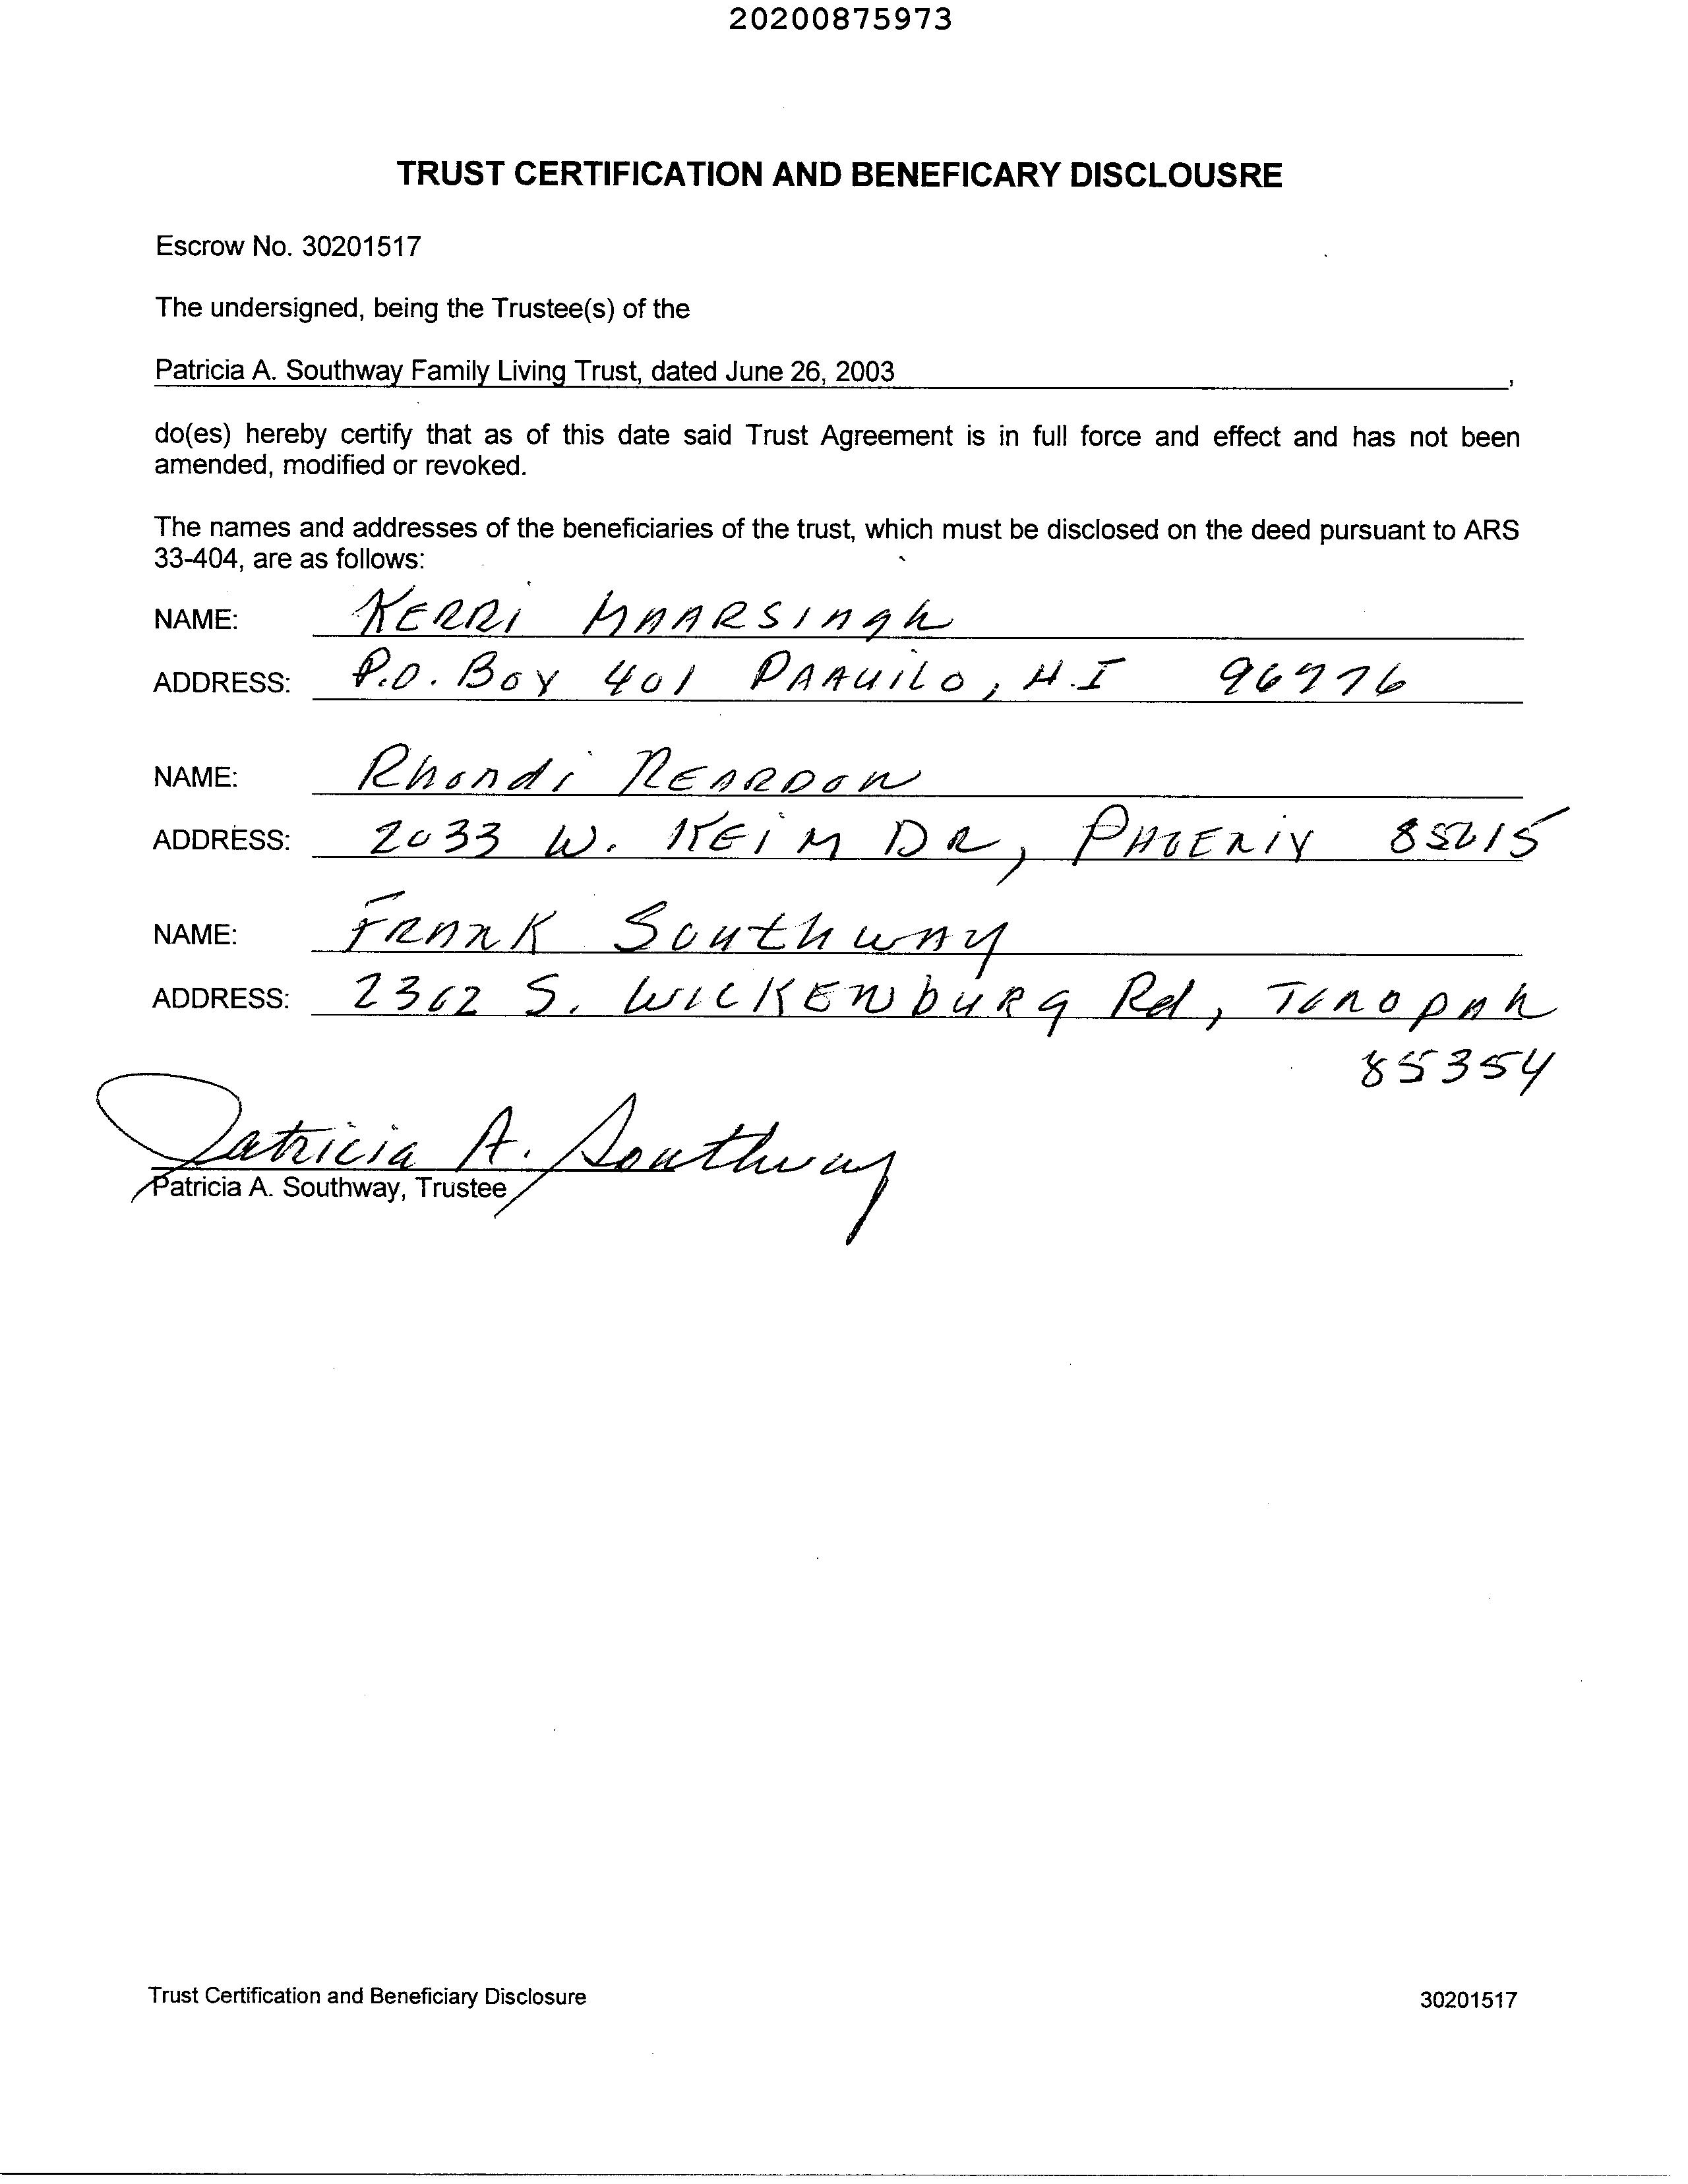 20200875973
TRUST CERTIFICATION AND BENEFICARY DISCLOUSRE
Escrow No. 30201517
The undersigned, being the Trustee(s) of the
Patricia A. Southway Family Living Trust, dated June 26, 2003,
do(es) hereby certify that as of this date said Trust Agreement is in full force and effect and has not been
amended, modified or revoked.
The names and addresses of the beneficiaries of the trust, which must be disclosed on the deed pursuant to ARS
33-404, are as follows:
NAME: KERRI HAARSINgh
ADDRESS: P.O. Box 401 PAAuiLo, H.I 96776
NAME: Rhondi REARDON
ADDRESS: 2033 W. KEiM DR, PHOENix 85015
NAME: FRANK Southway
ADDRESS: 2302 S. WICKENbuRg Rd, TONOpAh
85354
Patricia A. Southway
Patricia A. Southway, Trustee
Trust Certification and Beneficiary Disclosure 30201517